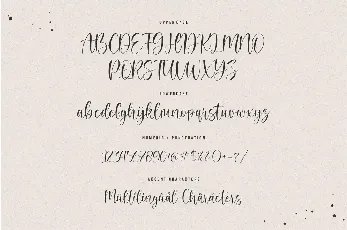 UPPERCASE
ABCDEFGHIJKLMNO
PQRSTUVWXYZ
LOWERCASE
abcdefghijklmnopqrstuvwxyz
NUMERAL & PUNCTUATION
ACCENT CHARACTERS
Multilingual Characters